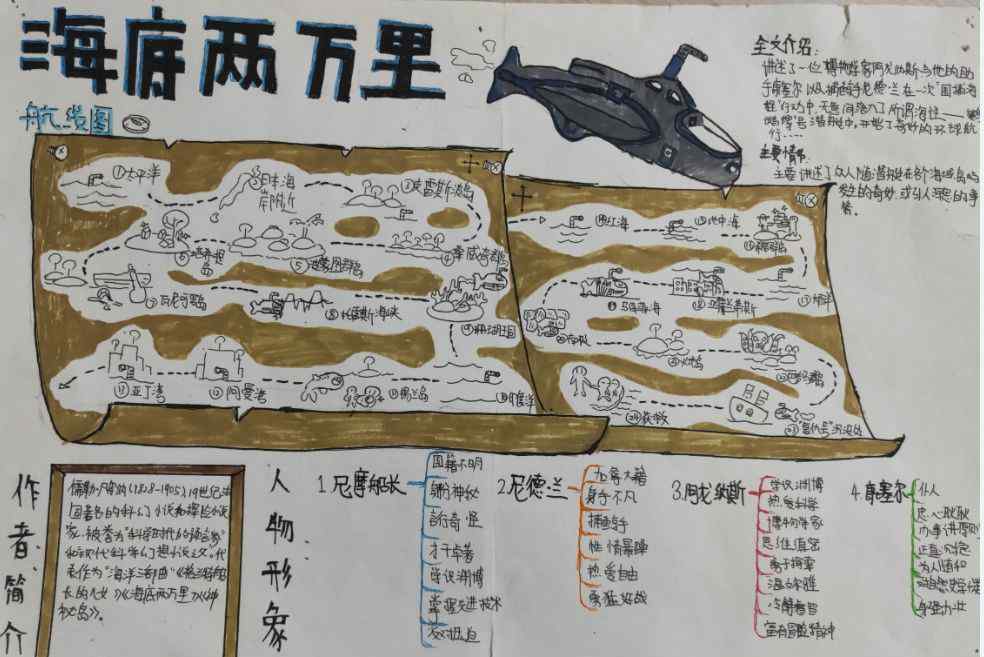 海底两万里
航线图
全文介绍:
讲述了一位博物学家阿龙纳斯与他的助
手康塞尔以及捕鲸手尼德·兰在一次"围捕海
怪"行动中,无意间落入了所谓海怪——鹦
鹉螺号潜艇中,开始了奇妙的环球航
行……
主要情节
主要讲述了众人随潜艇在各海域岛屿
发生的奇妙或引人深思的事
情。
①太平洋
日本海
岸附近
③克雷斯波岛
④
⑤
⑥
⑦瓦尼可罗岛
⑧托雷斯海峡
⑨珊瑚王国
⑩印度洋
⑪锡兰岛
⑫阿曼湾
⑬亚丁湾
⑭红海
⑮地中海
大西洋
马尾藻海
火地岛
获救
"复仇号"沉没处
作者简介
儒勒·凡尔纳(1828-1905),19世纪法
国著名的科幻小说和探险小说
家,被誉为"科学时代的预言家"
和现代科学幻想小说之父。代
表作为"海洋三部曲"《格兰特船
长的儿女》《海底两万里》《神
秘岛》。
人物形象
1.尼摩船长
国籍不明
身份神秘
言行奇怪
才干卓著
学识渊博
掌握先进技术
反对压迫
2.尼德·兰
加拿大籍
身手不凡
捕鲸手
性情暴躁
热爱自由
勇猛好战
3.阿龙纳斯
学识渊博
热爱科学
博物学家
思维缜密
善于探索
温和儒雅
冷静睿智
富有冒险精神
4.康塞尔
仆人
忠心耿耿
办事讲原则
正直沉稳
为人随和
身强力壮